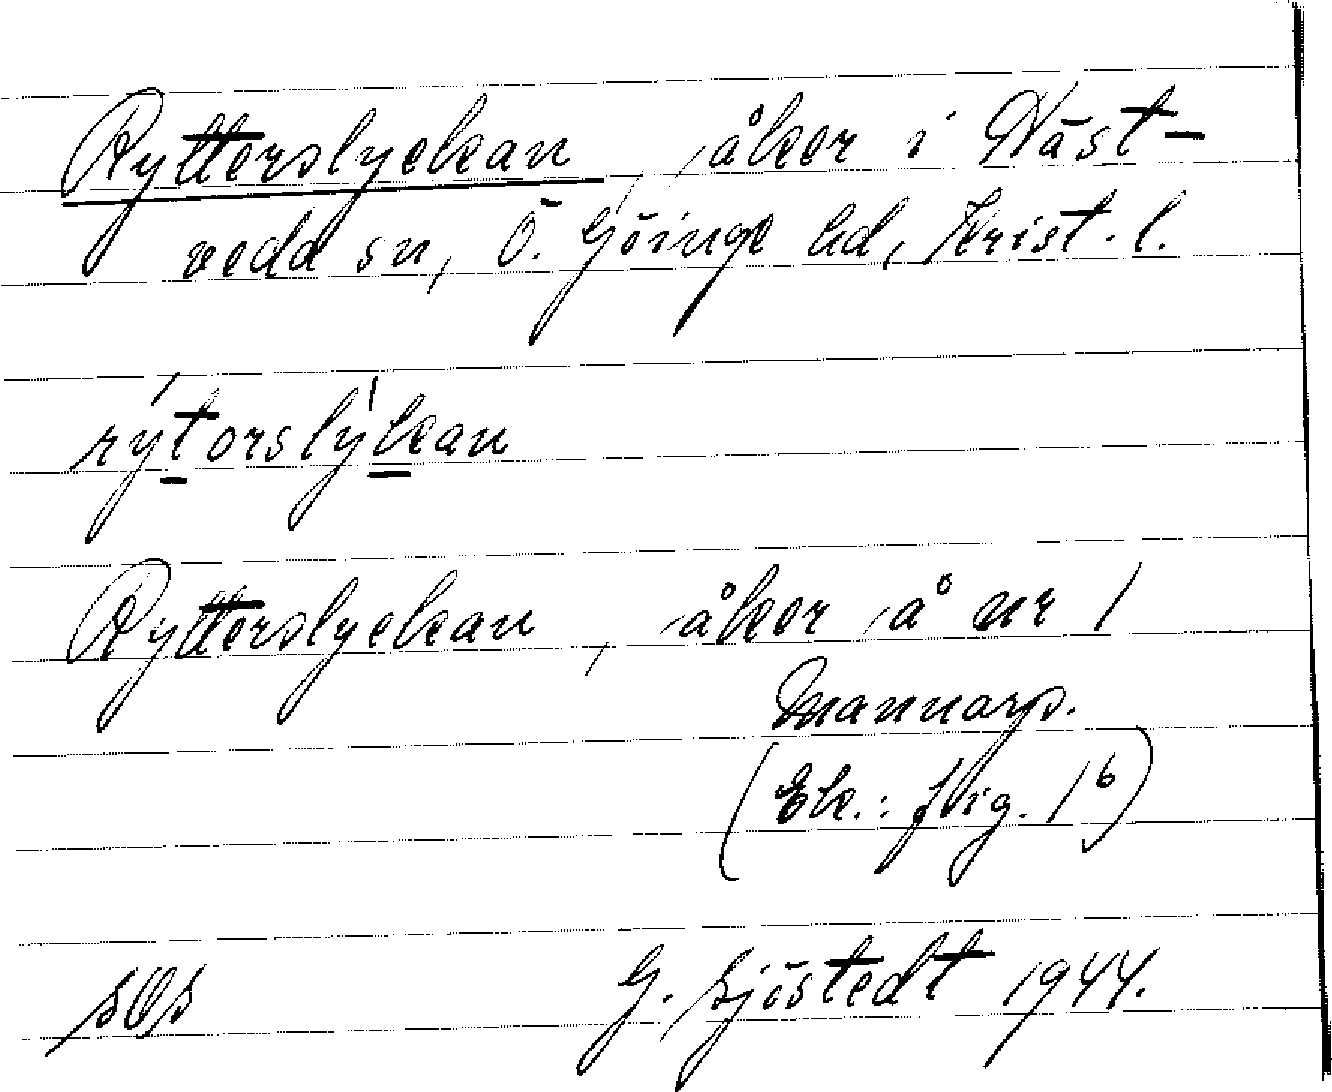 Rytterslyckan, åker i Näst-
veda sn, Ö. Göinge hd, Krist. l.
rýtorslỳkan
Rytterslyckan, åker å nr 1
Mannarp.
(Ek.: fig. 1b)
G. Sjöstedt 1944.